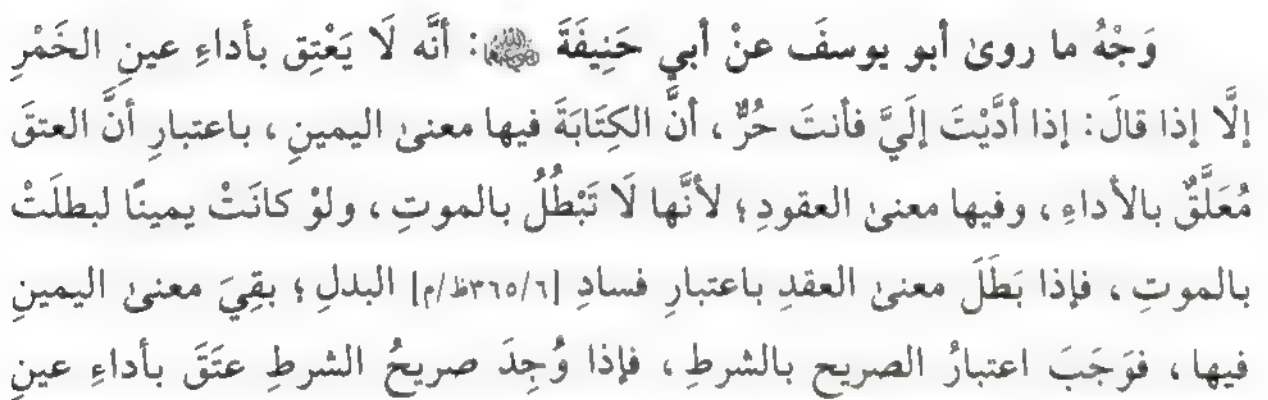 وَجْهُ ما روىٰ أبو يوسفَ عنْ أبي حَنِيفَةَ ﷺ: أنَّه لَا يَعْتِق بأداءِ عينِ الخَمْرِ
إلَّا إذا قالَ: إذا أدَّيْتَ إلَيَّ فأنتَ حُرٌّ، أنَّ الكِتَابَةَ فيها معنىٰ اليمينِ، باعتبارِ أنَّ العتقَ
مُعَلَّقٌ بالأداءِ، وفيها معنىٰ العقودِ؛ لأنَّها لَا تَبْطُلُ بالموتِ، ولوْ كانَتْ يمينًا لبطلَتْ
بالموتِ، فإذا بَطَلَ معنىٰ العقدِ باعتبارِ فسادِ [٦/٣٦٥ظ/م] البدلِ؛ بقِيَ معنىٰ اليمينِ
فيها، فوَجَبَ اعتبارُ الصريح بالشرطِ، فإذا وُجِدَ صريحُ الشرطِ عتَقَ بأداءِ عينِ